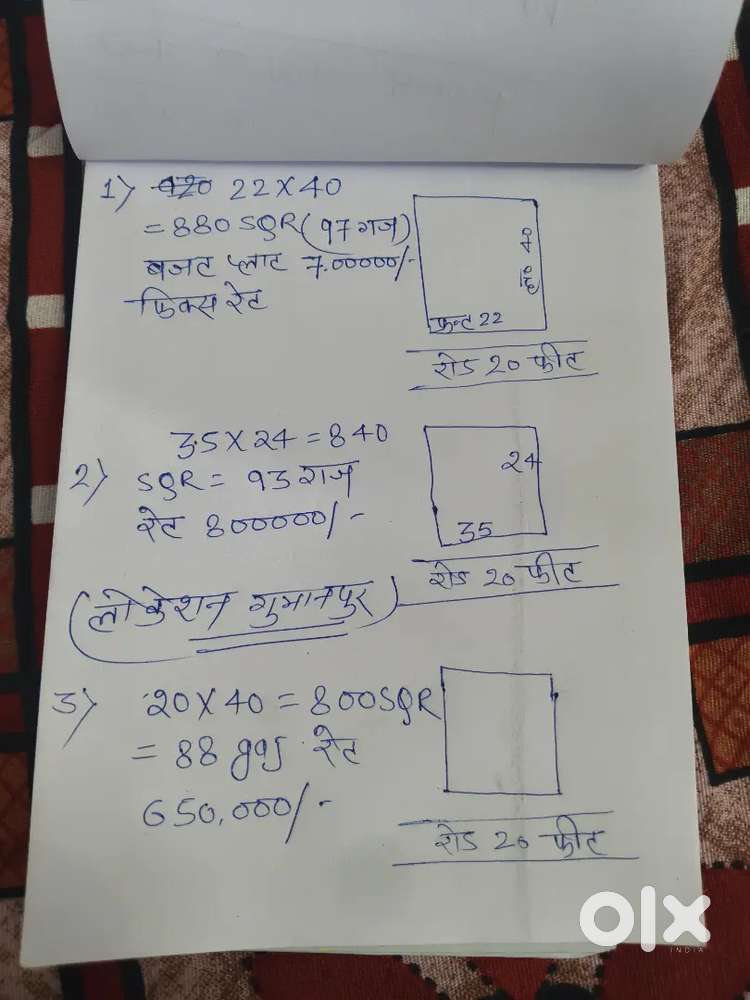 1) 22x40
= 880 SQR (97 गज)
बजट प्लाट 7.00000/-
फिक्स रेट
40
फ्रन्ट 22
रोड 20 फीट
35x24 = 840
2) SQR = 93 गज
रेट 800000/-
24
35
रोड 20 फीट
(लोकेशन गुमानपुर)
3) 20x40 = 800SQR
= 88 gaj रेट
650,000/-
रोड 20 फीट
olx
INDIA